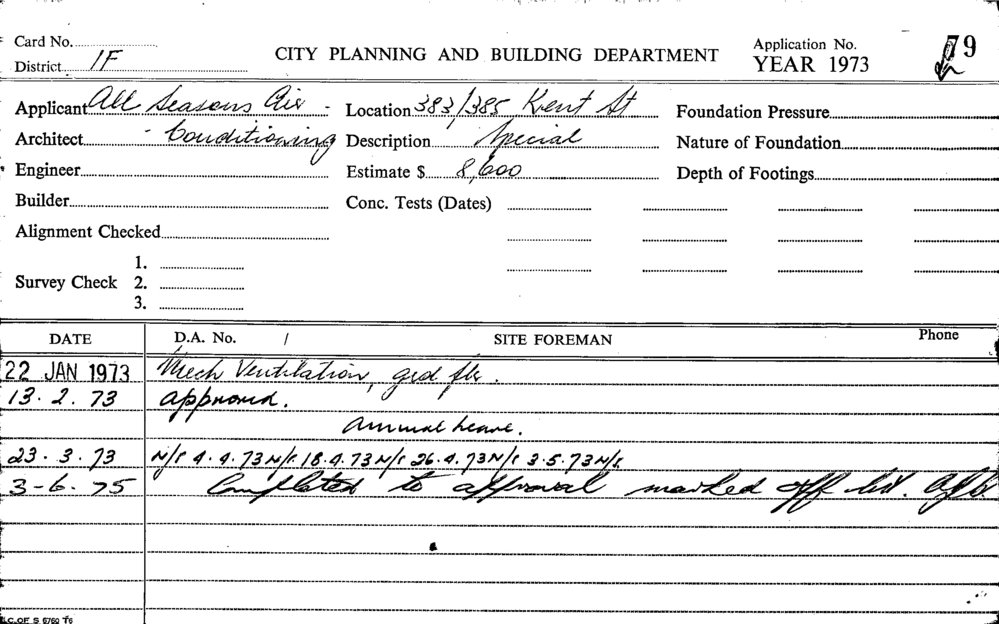 Card No.
District 1F
CITY PLANNING AND BUILDING DEPARTMENT
Application No. 79
YEAR 1973
Applicant All Seasons Air - Location 383/385 Kent St Foundation Pressure
Architect - Conditioning Description Special Nature of Foundation
Engineer Estimate $ 8,600 Depth of Footings
Builder Conc. Tests (Dates)
Alignment Checked
1.
Survey Check 2.
3.
DATE D.A. No. / SITE FOREMAN Phone
22 JAN 1973 Mech Ventilation, grd flr.
13.2.73 approved.
Annual leave.
23.3.73 N/S 4.4.73 N/S 18.4.73 N/S 26.4.73 N/S 3.5.73 N/S.
3-6.75 Completed to approval marked off list.